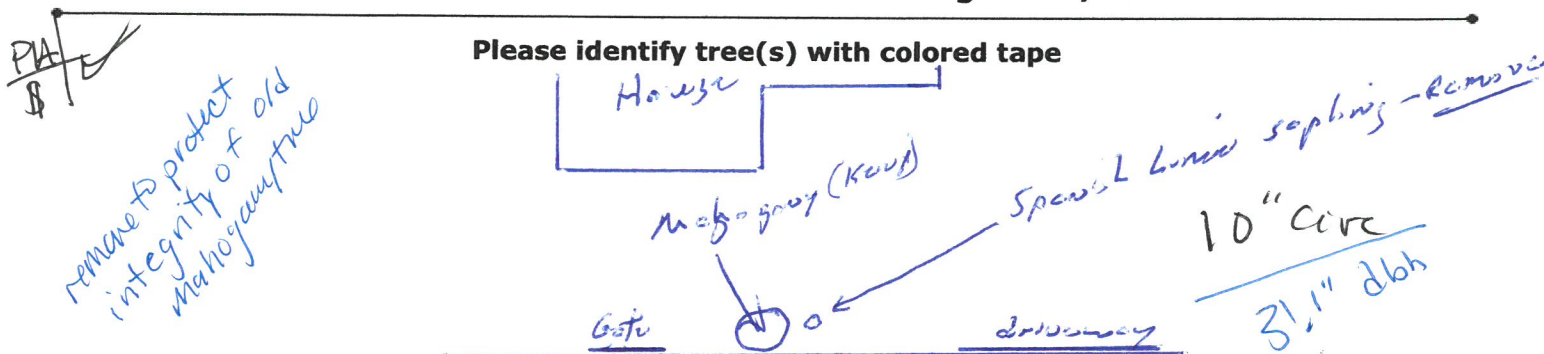 PIA
$
Please identify tree(s) with colored tape
House
remove to protect
integrity of old
mahogany tree
Mahogany (Keep)
Spanish Lime sapling - Remove
10" circ
3.1" dbh
Gate
driveway